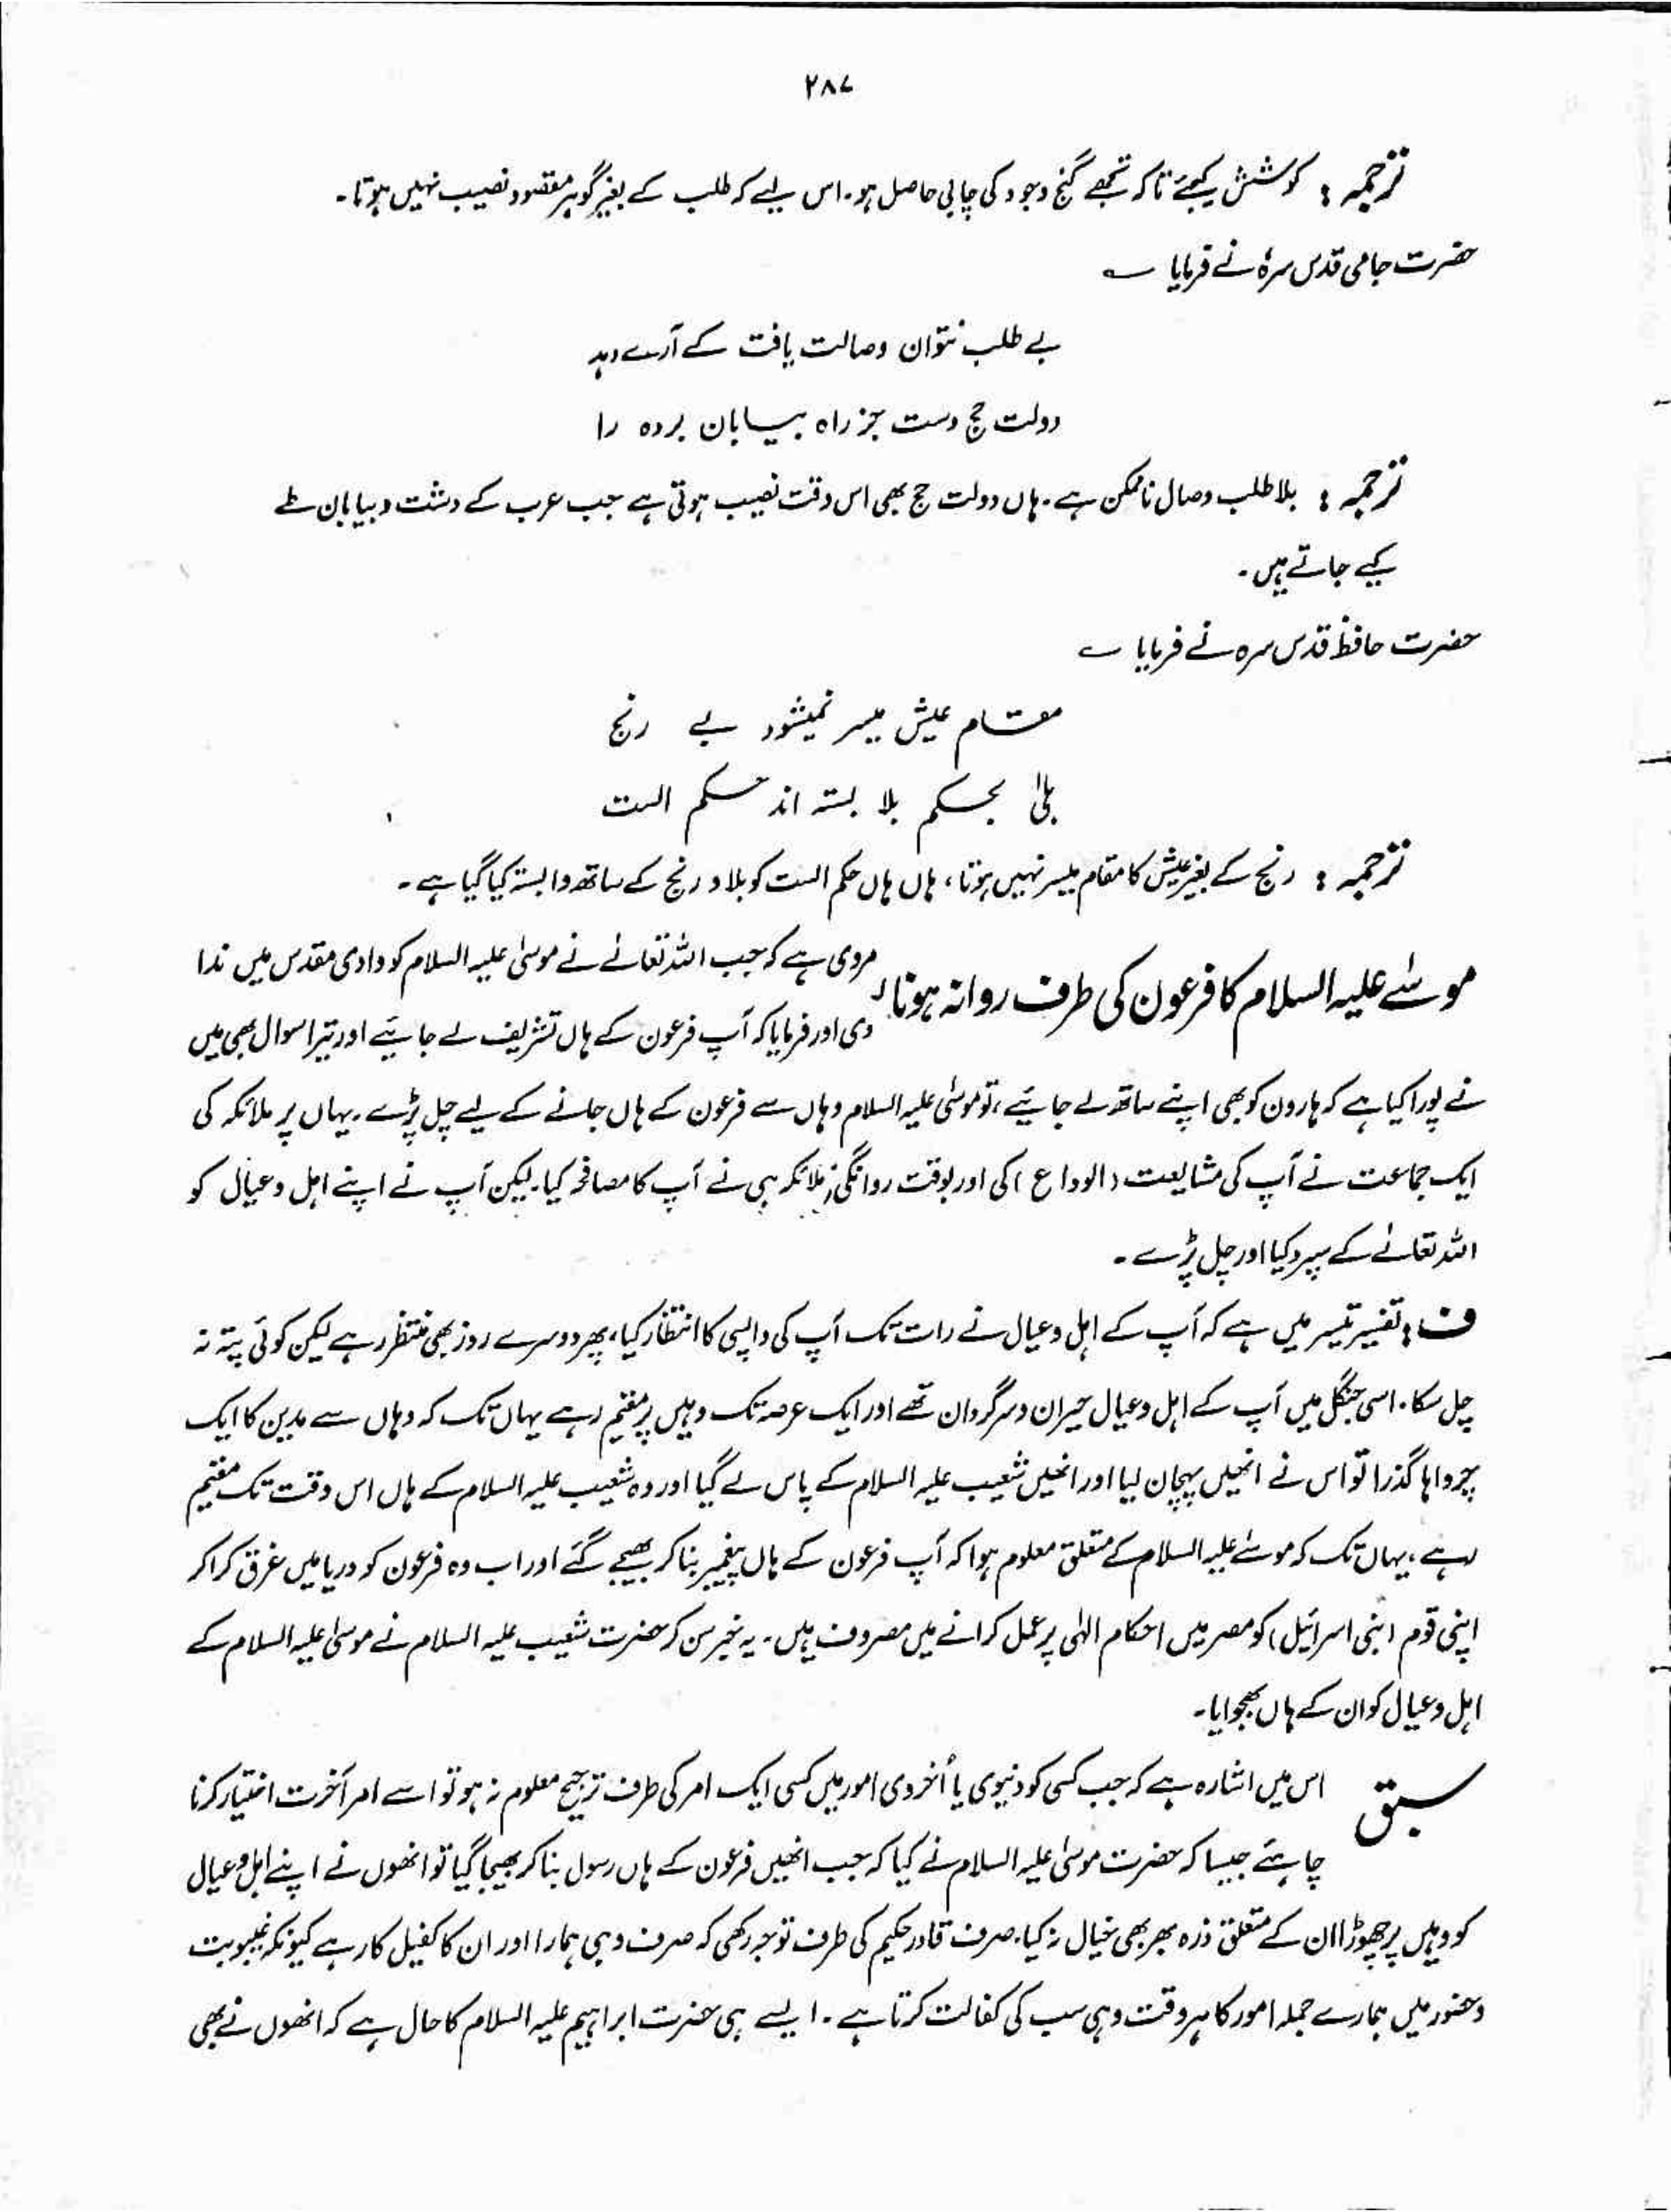 ۲۸۷
ترجمہ : کوشش کیجئے تاکہ تجھے گنج وجود کی چابی حاصل ہو۔ اس لیے کہ طلب کے بغیر گوہر مقصود نصیب نہیں ہوتا۔
حضرت جامی قدس سرہٗ نے فرمایا ؎
بے طلب نتواں وصالت یافت کے آرے دہد
دولت حج دست جز راہ بیابان بردہ را
ترجمہ : بلا طلب وصال ناممکن ہے۔ ہاں دولت حج بھی اس وقت نصیب ہوتی ہے جب عرب کے دشت و بیابان طے
کیے جاتے ہیں۔
حضرت حافظ قدس سرہ نے فرمایا ؎
مقام عیش میسر نمیشود بے رنج
بلیٰ بحکم بلا بستہ اند حکم الست
ترجمہ : رنج کے بغیر عیش کا مقام میسر نہیں ہوتا، ہاں ہاں حکم الست کو بلا و رنج کے ساتھ وابستہ کیا گیا ہے۔
موسٰے علیہ السلام کا فرعون کی طرف روانہ ہونا
مروی ہے کہ جب اللہ تعالےٰ نے موسیٰ علیہ السلام کو وادی مقدس میں ندا
دی اور فرمایا کہ آپ فرعون کے ہاں تشریف لے جائیے اور تیرا سوال بھی میں
نے پورا کیا ہے کہ ہارون کو بھی اپنے ساتھ لے جائیے، تو موسیٰ علیہ السلام وہاں سے فرعون کے ہاں جانے کے لیے چل پڑے۔ یہاں پر ملائکہ کی
ایک جماعت نے آپ کی مشایعت (الوداع) کی اور بوقت روانگی ملائکہ ہی نے آپ کا مصافحہ کیا۔ لیکن آپ نے اپنے اہل و عیال کو
اللہ تعالےٰ کے سپرد کیا اور چل پڑے۔
ف : تفسیر تیسر میں ہے کہ آپ کے اہل و عیال نے رات تک آپ کی واپسی کا انتظار کیا، پھر دوسرے روز بھی منتظر رہے لیکن کوئی پتہ نہ
چل سکا۔ اسی جنگل میں آپ کے اہل و عیال حیران و سرگرداں تھے اور ایک عرصہ تک وہیں پر مقیم رہے یہاں تک کہ وہاں سے مدین کا ایک
چرواہا گذرا تو اس نے انھیں پہچان لیا اور انھیں شعیب علیہ السلام کے پاس لے گیا اور وہ شعیب علیہ السلام کے ہاں اس وقت تک مقیم
رہے، یہاں تک کہ موسٰے علیہ السلام کے متعلق معلوم ہوا کہ آپ فرعون کے ہاں پیغمبر بنا کر بھیجے گئے اور اب وہ فرعون کو دریا میں غرق کرا کر
اپنی قوم (بنی اسرائیل) کو مصر میں احکام الٰہی پر عمل کرانے میں مصروف ہیں۔ یہ خبر سن کر حضرت شعیب علیہ السلام نے موسیٰ علیہ السلام کے
اہل و عیال کو ان کے ہاں بھجوایا۔
سبق
اس میں اشارہ ہے کہ جب کسی کو دنیوی یا اُخروی امور میں کسی ایک امر کی طرف ترجیح معلوم نہ ہو تو اسے امر آخرت اختیار کرنا
چاہئے جیسا کہ حضرت موسیٰ علیہ السلام نے کیا کہ جب انھیں فرعون کے ہاں رسول بنا کر بھیجا گیا تو انھوں نے اپنے اہل و عیال
کو وہیں پر چھوڑا ان کے متعلق ذرہ بھر بھی خیال نہ کیا۔ صرف قادر حکیم کی طرف توجہ رکھی کہ صرف وہی ہمارا اور ان کا کفیل کار ہے کیونکہ غیبوبت
و حضور میں ہمارے جملہ امور کا ہر وقت وہی سب کی کفالت کرتا ہے۔ ایسے ہی حضرت ابراہیم علیہ السلام کا حال ہے کہ انھوں نے بھی